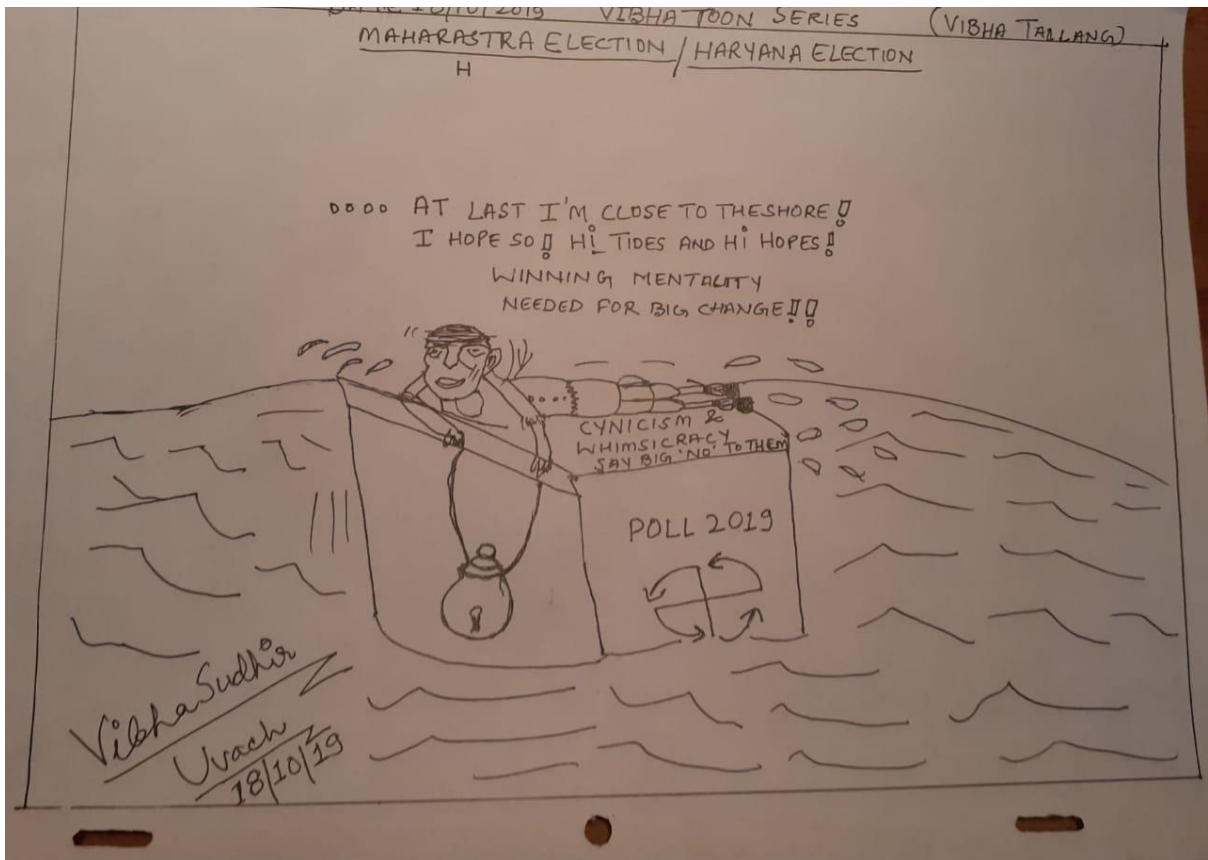 18/10/2019 VIBHA TOON SERIES (VIBHA TAILANG)
MAHARASTRA ELECTION / HARYANA ELECTION
H
AT LAST I'M CLOSE TO THESHORE!
I HOPE SO! Hi TIDES AND Hi HOPES!
WINNING MENTALITY
NEEDED FOR BIG CHANGE!!
CYNICISM &
WHIMSICRACY
SAY BIG 'NO' TO THEM
POLL 2019
Vibha Sudhir
Uvach
18/10/19